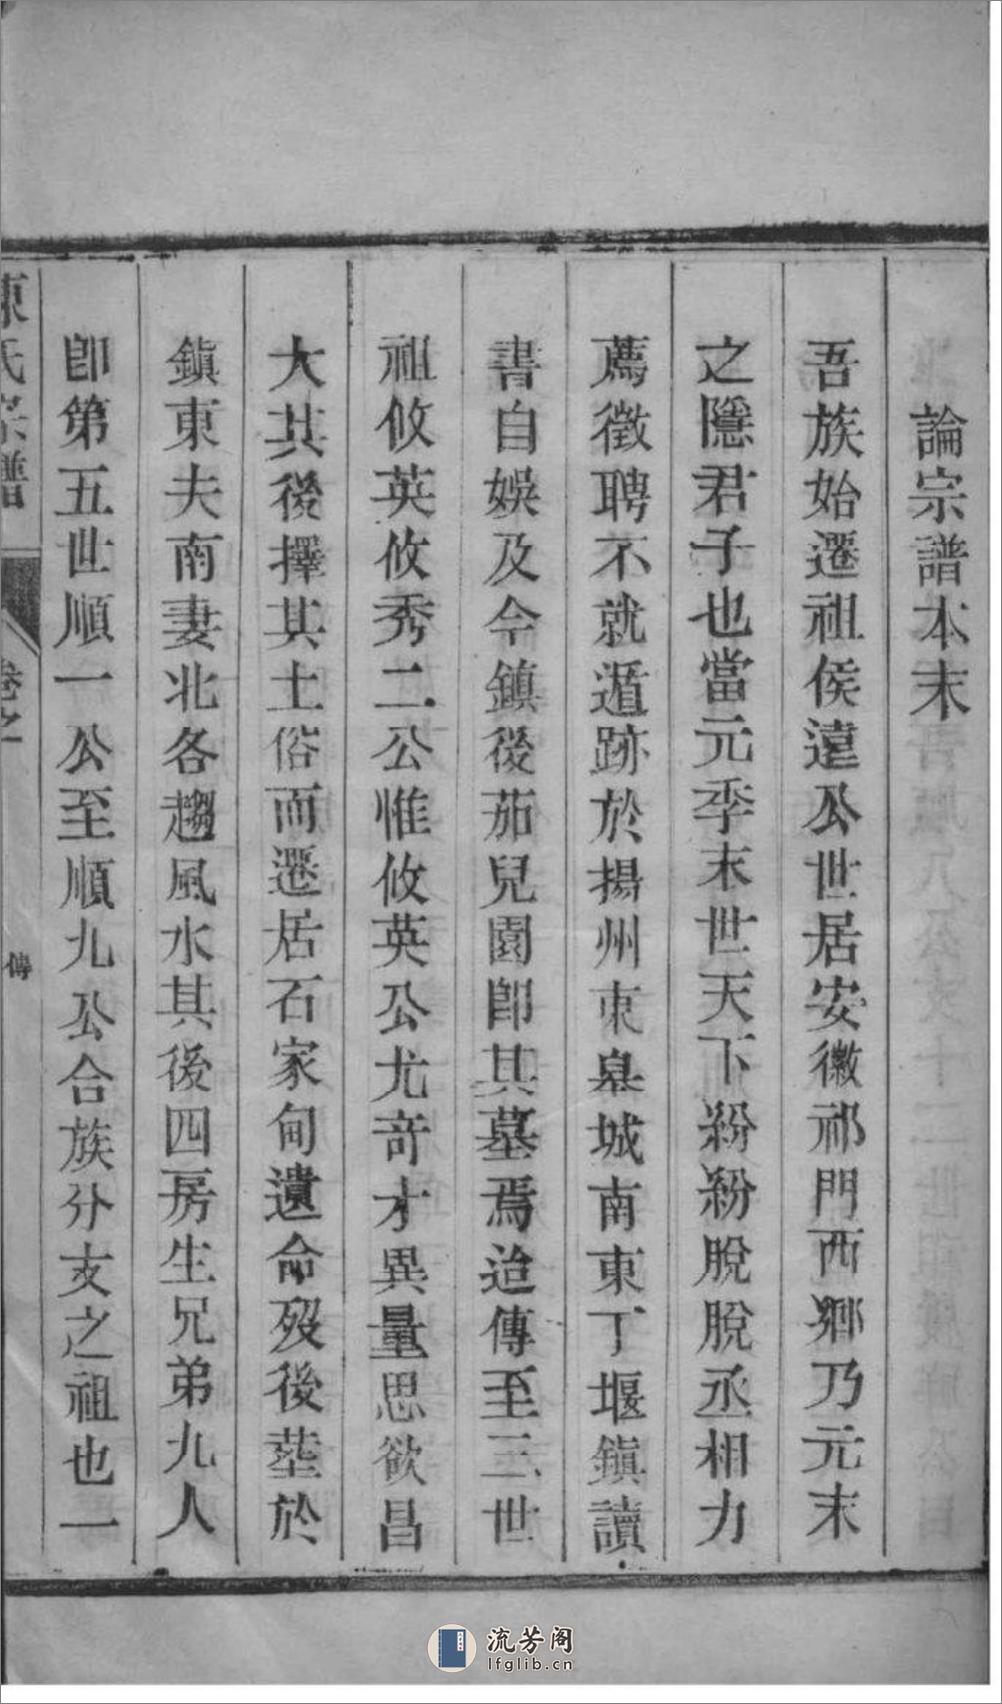 論宗譜本末
吾族始遷祖侯遠公世居安徽祁門西鄉乃元末
之隱君子也當元季末世天下紛紛脫脫丞相力
薦徵聘不就遁跡於揚州東臯城南東丁堰鎮讀
書自娛及今鎮後茄兒園卽其墓焉迨傳至三世
祖攸英攸秀二公惟攸英公尤奇才異量思欲昌
大其後擇其土俗而遷居石家甸遺命歿後塟於
鎮東夫南妻北各趨風水其後四房生兄弟九人
卽第五世順一公至順九公合族分支之祖也一
氏宗譜
卷之
傳
流芳阁
lfglib.cn